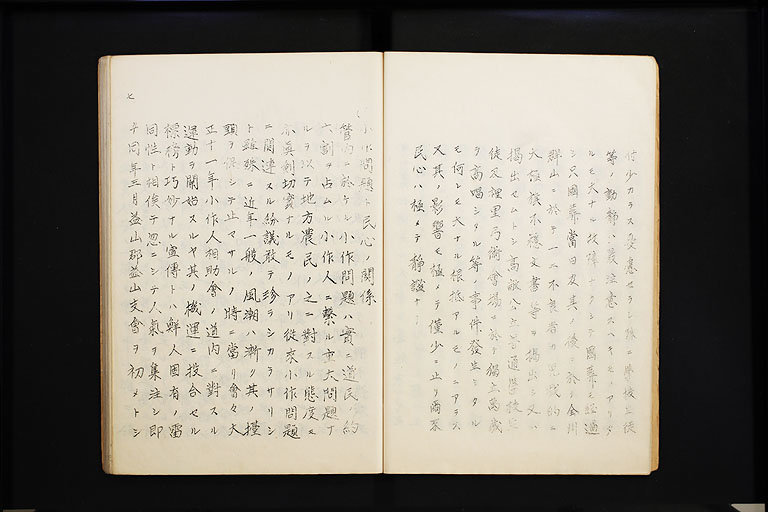 付少カラス憂慮セラレシ殊ニ学校生徒
等ノ動静ハ最注意スヘキモノアリタ
ルモ大ナル故障ナクシテ國葬ヲ経過
シ只國葬當日及其ノ後ニ於テ金川
群山ニ於テ一二不良者ノ
大極旗不穏文書等ヲ掲出シ又ハ
掲出セムトシ高敞公立普通学校生
徒及裡里弓術會場ニ於テ獨立萬歳
ヲ高唱シタル等ノ事件發生シタル
モ何レモ大ナル根抵アルモノニアラス
又其ノ影響モ極メテ僅少ニ止リ爾来
民心ハ極メテ静謐ナリ
小作問題ト民心ノ関係
管内ニ於ケル小作問題ハ實ニ道民ノ約
六割ヲ占ムル小作人ニ繋ル重大問題ナ
ルヲ以テ地方農民ノ之ニ對スル態度モ
亦真剣切實ナルモノアリ従来小作問題
ニ関連スル紛議敢テ珍ラシカラサリシ
ト雖殊ニ近年一般ノ風潮ハ漸ク其ノ擡
頭ヲ促シテ止マサルノ時ニ當リ會々大
正十一年小作人相助會ノ道内ニ對スル
運動ヲ開始スルヤ其ノ機運ニ投合セル
標榜ト巧妙ナル宣傳トハ鮮人固有ノ雷
同性ト相俟テ忽ニシテ人氣ヲ集注シ即
チ同年三月益山郡益山支會ヲ初メトシ
七